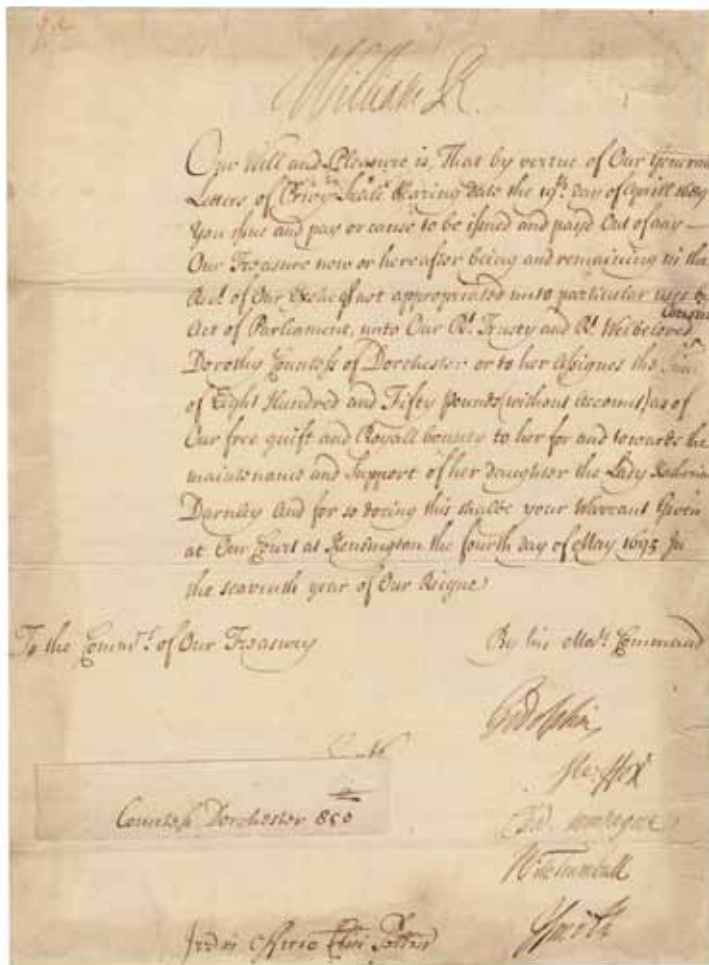 William R.
Our Will and Pleasure is, That by vertue of Our General
Letters of Privy Seale bearing date the 19th day of Aprill 1689
You issue and pay or cause to be issued and payd Out of any
Our Treasure now or hereafter being and remaining in the
Rect. of Our Excheqr not appropriated unto particular uses by
Act of Parliament, unto Our Rt. Trusty and Rt. Welbeloved Cousin
Dorothy Countess of Dorchester or to her Assignes the Sum
of Eight Hundred and Fifty pounds (without Account) as of
Our free guift and Royall bounty to her for and towards the
maintenance and Support of her daughter the Lady
Darnley And for so doeing this shalbe your Warrant Given
at Our Court at Kensington the fourth day of May 1695 In
the seaventh year of Our Reigne
To the Commrs. of Our Treasury
By his Mats. Command
Godolphin
Ste: ffox
Countess Dorchester 850
Wm Trumbull
J Smith